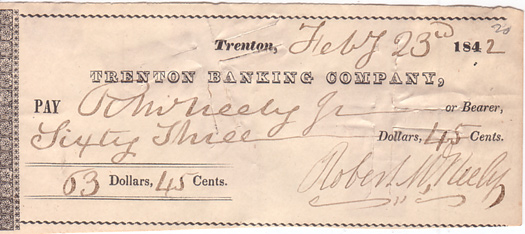 Trenton, Feby 23rd 1842
TRENTON BANKING COMPANY,
PAY McNeely Jr or Bearer,
Sixty Three Dollars, 45 Cents.
63 Dollars, 45 Cents.
Robert McNeely